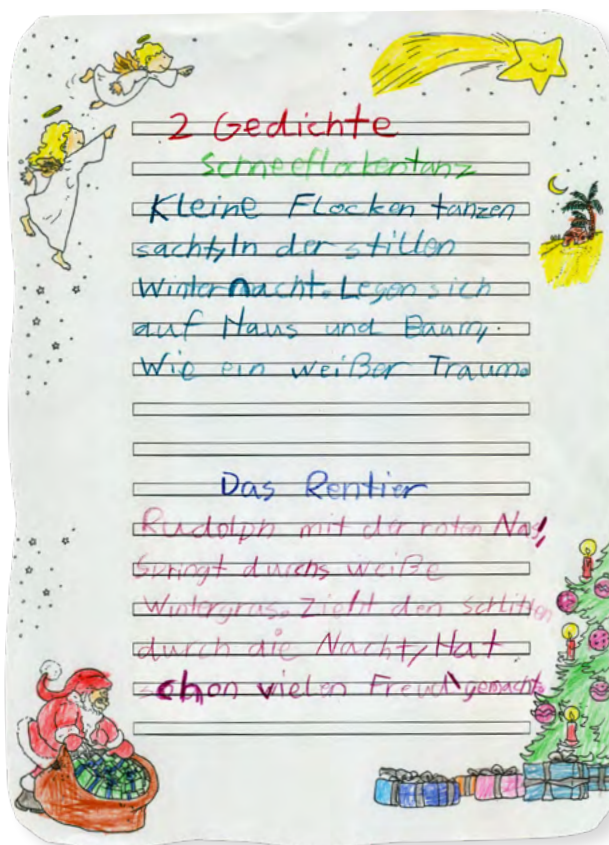 2 Gedichte
Schneeflockentanz
Kleine Flocken tanzen
sacht, In der stillen
Winternacht. Legen sich
auf Haus und Baum,
Wie ein weißer Traum.
Das Rentier
Rudolph mit der roten Nas,
Springt durchs weiße
Wintergras. Zieht den Schlitten
durch die Nacht, Hat
schon vielen Freud gemacht.